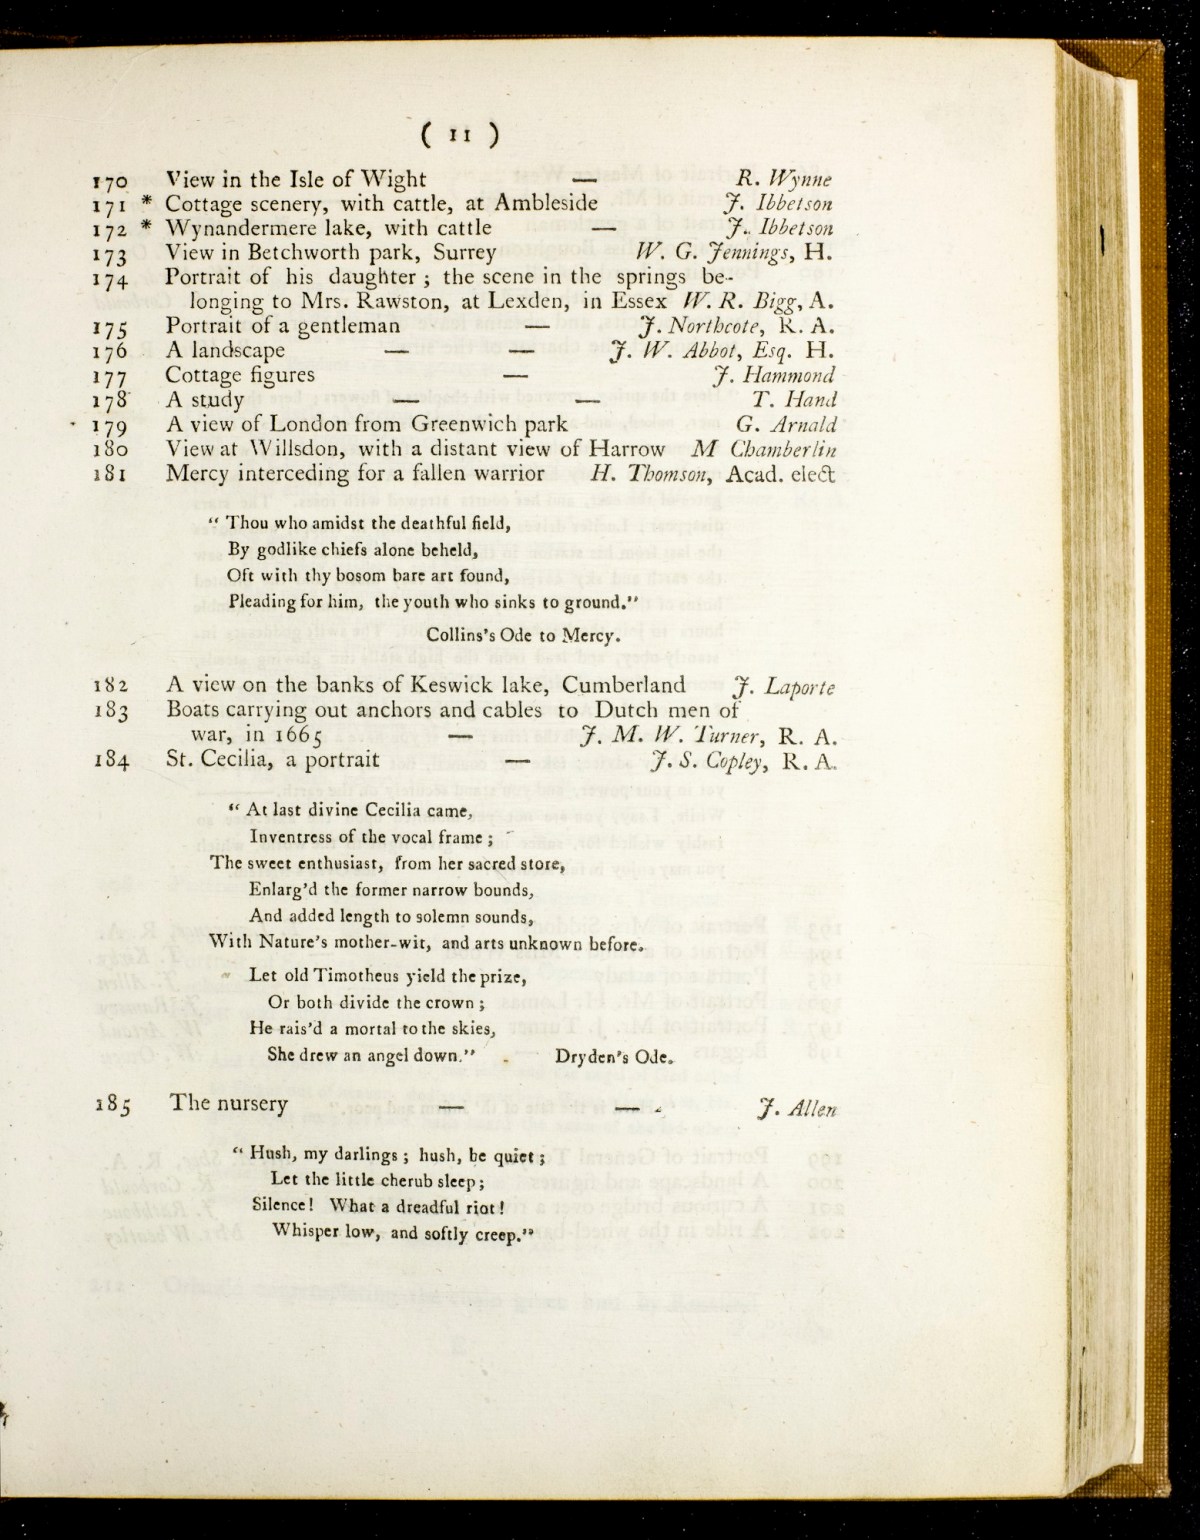 ( 11 )
170 View in the Isle of Wight — R. Wynne
171 * Cottage scenery, with cattle, at Ambleside J. Ibbetson
172 * Wynandermere lake, with cattle — J. Ibbetson
173 View in Betchworth park, Surrey W. G. Jennings, H.
174 Portrait of his daughter ; the scene in the springs be-
longing to Mrs. Rawston, at Lexden, in Essex W. R. Bigg, A.
175 Portrait of a gentleman — J. Northcote, R. A.
176 A landscape — — J. W. Abbot, Esq. H.
177 Cottage figures — J. Hammond
178 A study — — T. Hand
179 A view of London from Greenwich park G. Arnald
180 View at Willsdon, with a distant view of Harrow M Chamberlin
181 Mercy interceding for a fallen warrior H. Thomson, Acad. elect
“ Thou who amidst the deathful field,
By godlike chiefs alone beheld,
Oft with thy bosom bare art found,
Pleading for him, the youth who sinks to ground.”
Collins's Ode to Mercy.
182 A view on the banks of Keswick lake, Cumberland J. Laporte
183 Boats carrying out anchors and cables to Dutch men of
war, in 1665 — J. M. W. Turner, R. A.
184 St. Cecilia, a portrait — J. S. Copley, R. A.
“ At last divine Cecilia came,
Inventress of the vocal frame ;
The sweet enthusiast, from her sacred store,
Enlarg'd the former narrow bounds,
And added length to solemn sounds,
With Nature's mother-wit, and arts unknown before.
Let old Timotheus yield the prize,
Or both divide the crown ;
He rais'd a mortal to the skies,
She drew an angel down.” Dryden's Ode.
185 The nursery — — J. Allen
“ Hush, my darlings ; hush, be quiet ;
Let the little cherub sleep ;
Silence! What a dreadful riot !
Whisper low, and softly creep.”